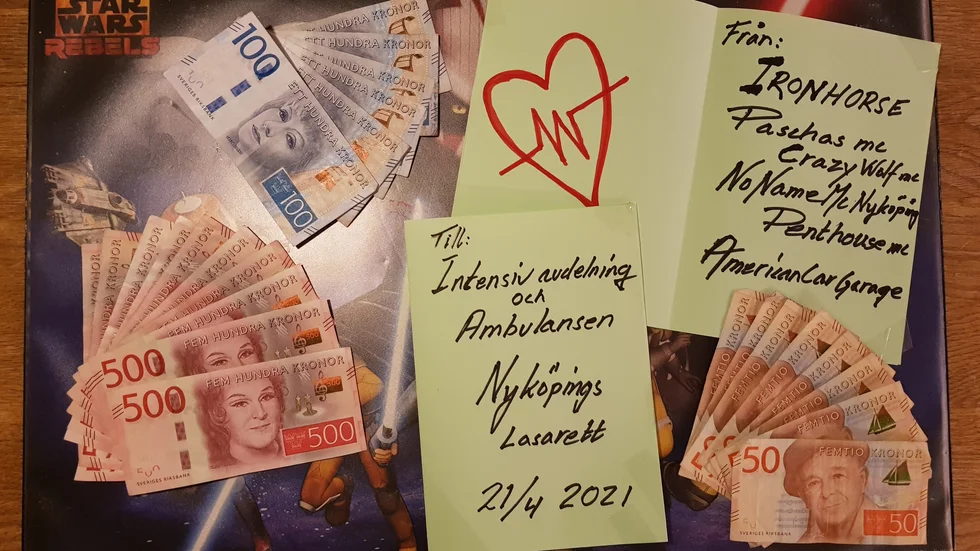 STAR
WARS
REBELS
100
SVERIGES RIKSBANK
ETT HUNDRA KRONOR
ETT HUNDRA KRONOR
ETT HUNDRA KRONOR
ETT HUNDRA KRONOR
ETT HUNDRA KRONOR
100
Från:
IRONHORSE
Paschas mc
Crazy Wolf mc
NoName Mc Nyköping
Penthouse mc
AmericanCarGarage
Till:
Intensiv avdelning
och
Ambulansen
Nyköpings
Lasarett
21/4 2021
FEM HUNDRA KRONOR
500
FEM HUNDRA KRONOR
500
500
SVERIGES RIKSBANK
FEMTIO KRONOR
FEMTIO KRONOR
FEMTIO KRONOR
FEMTIO KRONOR
FEMTIO KRONOR
FEMTIO KRONOR
50
50
SVERIGES RIKSBANK